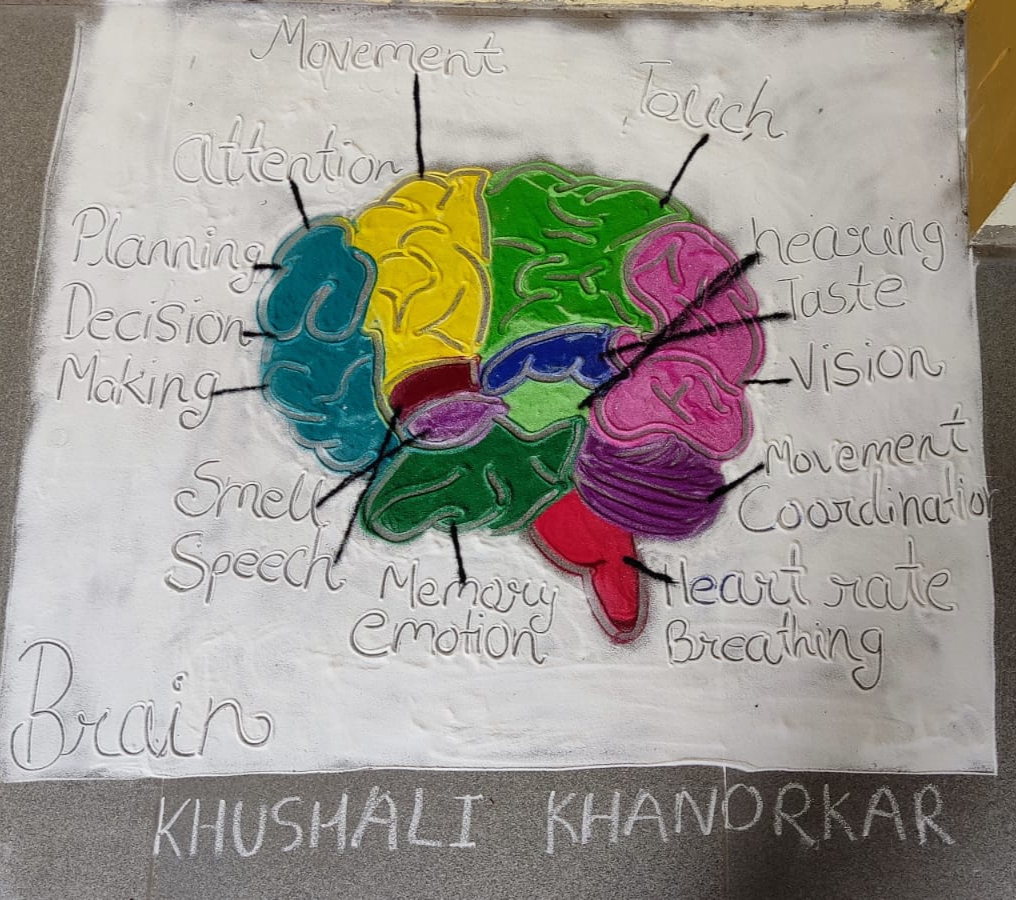 Movement
Touch
Attention
Planning
hearing
Decision
Taste
Making
Vision
Movement
Coordination
Smell
Speech
Memory
emotion
Heart rate
Breathing
Brain
KHUSHALI KHANORKAR